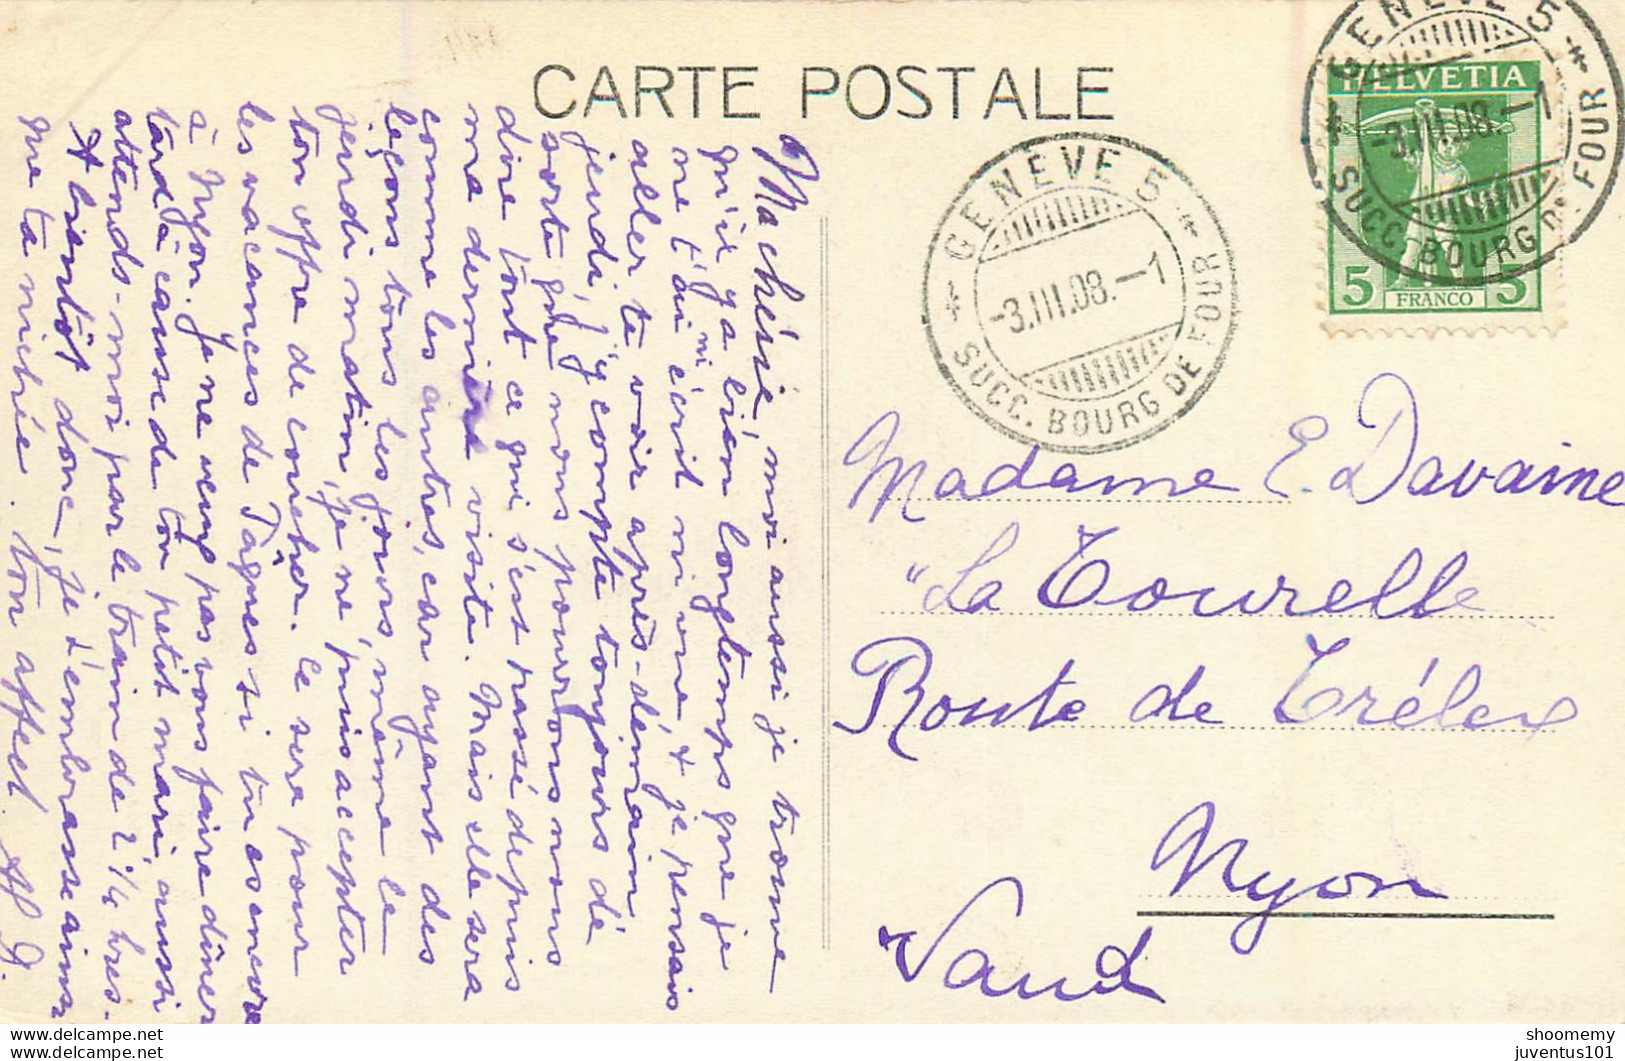 CARTE POSTALE
Ma chérie, moi aussi je trouve
qu'il y a bien longtemps que je
ne t'ai ni écrit ni vue, & je pensais
aller te voir après-demain
jeudi, j'y compte toujours de
sorte que nous pourrons nous
dire tout ce qui s'est passé depuis
ma dernière visite. Mais elle sera
comme les autres, car ayant des
leçons tous les jours, même le
jeudi matin, je ne puis accepter
ton offre de coucher. Ce sera pour
les vacances de Pâques si tu as encore
à Nyon. Je ne veux pas vous faire dîner
tard à cause de ton petit mari, aussi
attends-moi par le train de 2 1/4 hres.
A bientôt donc, je t'embrasse ainsi
que ta nichée. Ton affect.
GENÈVE 5
-3.III.08.-1
SUCC. BOURG DE FOUR
GENÈVE 5
-3.III.08.-1
SUCC. BOURG DE FOUR
HELVETIA
5 FRANCO 5
Madame E. Davaine
"La Tourelle
Route de Trélex
Nyon
Vaud
shoomemy
juventus101